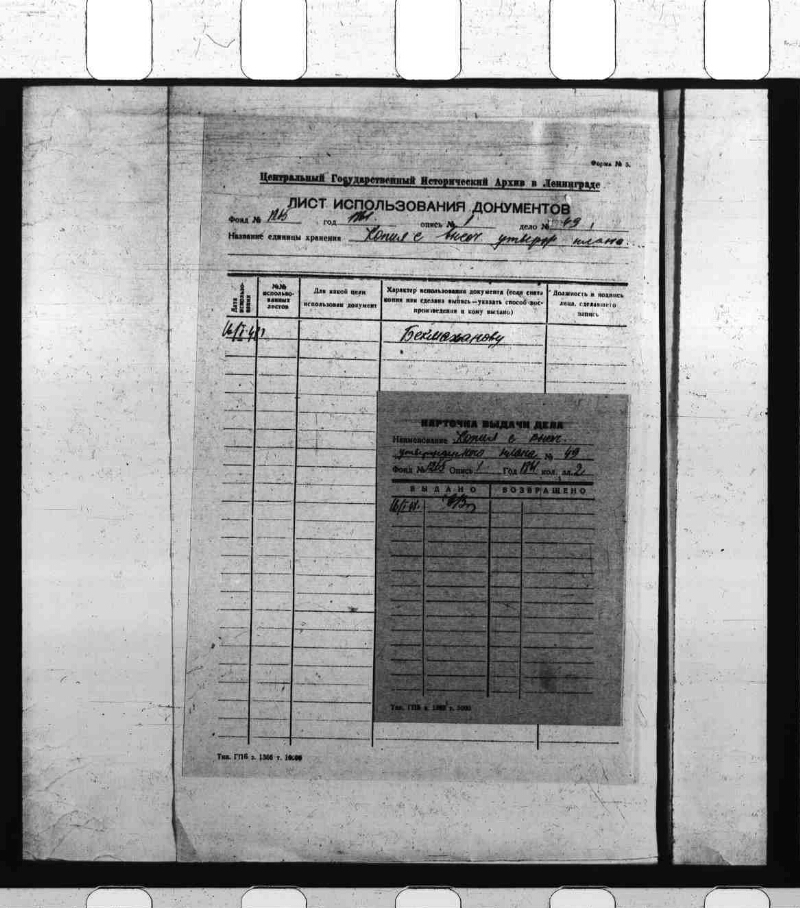 Форма № 5.
Центральный Государственный Исторический Архив в Ленинграде
ЛИСТ ИСПОЛЬЗОВАНИЯ ДОКУМЕНТОВ
Фонд № 1265 год опись № 1 дело № 49
Название единицы хранения Копия с высоч. утвержд. плана
Дата использо-
вания
№№
использо-
ванных
листов
Для какой цели
использован документ
Характер использования документа (если снята
копия или сделана выпись — указать способ вос-
произведения и кому выдано)
Должность и подпись
лица, сделавшего
запись
Бекмаханову
КАРТОЧКА ВЫДАЧИ ДЕЛА
Наименование Копия с высоч.
утвержденного плана № 49
Фонд № 1265 Опись 1 Год кол. лл. 2
ВЫДАНО ВОЗВРАЩЕНО
Тип. ГПБ з.
Тип. ГПБ з. 1366 т.